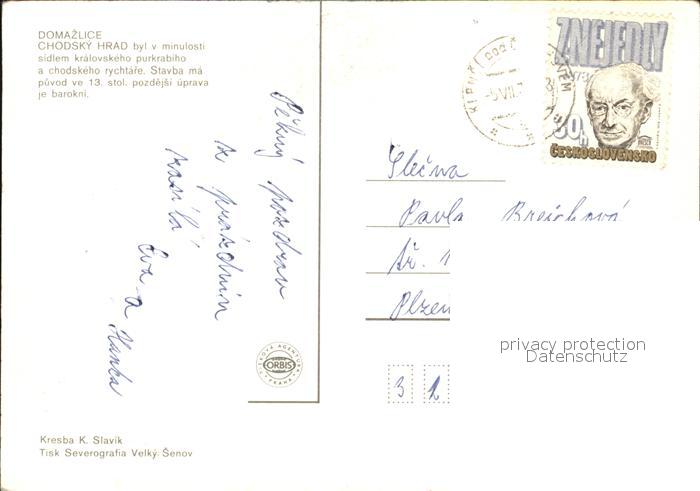 DOMAŽLICE
CHODSKÝ HRAD byl v minulosti
sídlem královského purkrabího
a chodského rychtáře. Stavba má
původ ve 13. stol. pozdější úprava
je barokní.
Pěkný pozdrav
z prázdnin
zasílá
Eva a Hanka
Z NEJEDLÝ
30h
ČESKOSLOVENSKO
Slečna
Pavla
tř. 1
Plzeň
privacy protection
Datenschutz
3 2
ORBIS
PRAHA
Kresba K. Slavík
Tisk Severografia Velký Šenov